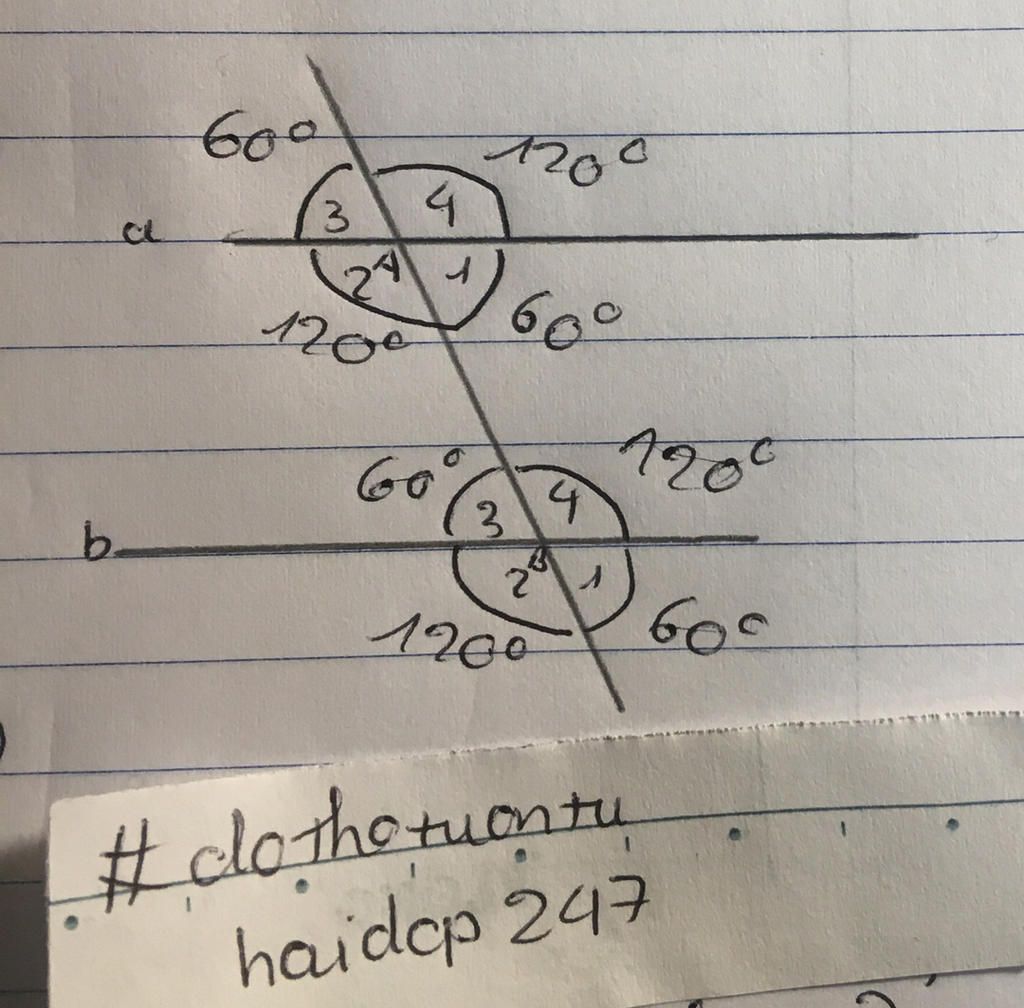 60° 120°
3 4
a
2 A 1
120° 60°
60° 120°
3 4
b
2 B 1
120° 60°
# dothotuontu
haidcp 247